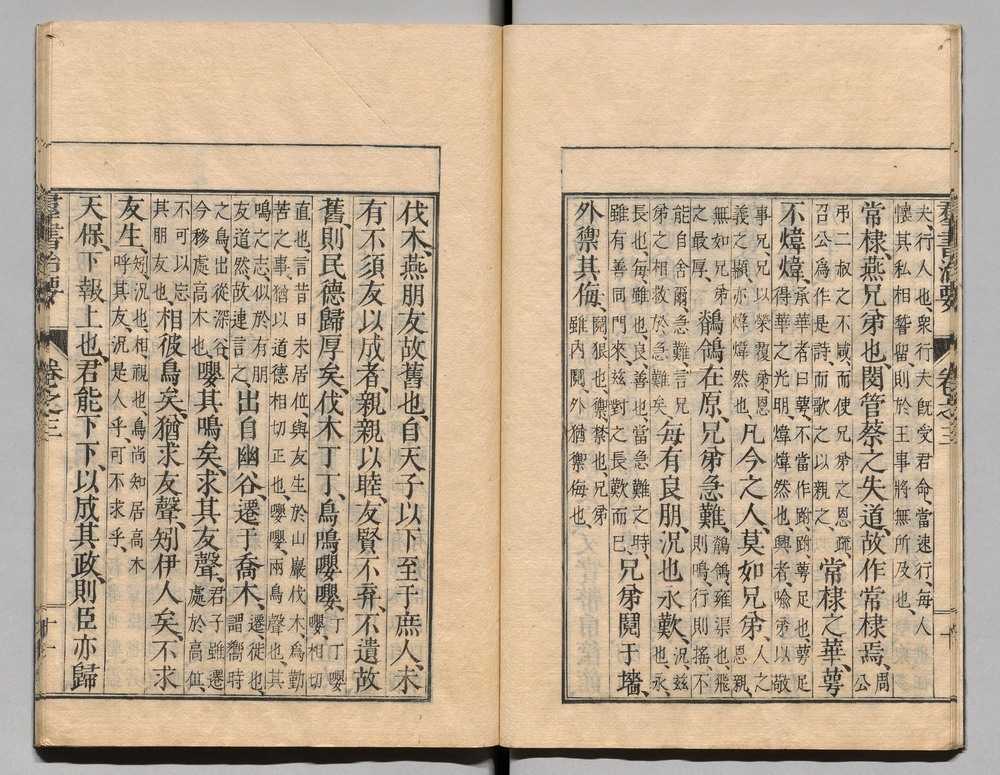 羣書治要 卷之三 十
夫、行人也、衆行夫旣受君命、當速行、每人
懷其私相稽留、則於王事將無所及也、
常棣、燕兄弟也、閔管蔡之失道、故作常棣焉、周公
弔二叔之不咸、而使兄弟之恩疏、召公爲作是詩、而歌之以親之、常棣之華、蕚
不煒煒、承華者曰蕚、不當作跗、跗、蕚足也、蕚足得華之光明、煒煒然也、興者、喻弟以敬
事兄、兄以榮覆弟、恩義之顯、亦煒煒然也、凡今之人、莫如兄弟、人之恩親、
無如兄弟之最厚、鶺鴒在原、兄弟急難、鶺鴒雍渠也、飛則鳴、行則搖、不
能自舍爾、急難言兄弟之相救於急難矣、每有良朋、況也永歎、況茲也、永、
長也、每雖也、良善也、當急難之時、雖有善同門來、茲對之長歎而已、兄弟鬩于墻、
外禦其侮、鬩狠也、禦禁也、兄弟雖内鬩、外猶禦侮也、
伐木、燕朋友故舊也、自天子以下至于庶人、未
有不須友以成者、親親以睦、友賢不弃、不遺故
舊、則民德歸厚矣、伐木丁丁、鳥鳴嚶嚶、丁丁嚶嚶、相切
直也、言昔日未居位、與友生於山巖伐木、爲勤苦之事、猶以道德相切正也、嚶嚶、兩鳥聲也、其
鳴之志、似於有朋友道然、故連言之、出自幽谷、遷于喬木、遷、徙也、謂嚮時
之鳥、出從深谷、今移處高木也、嚶其鳴矣、求其友聲、君子雖遷處於高位、
不可以忘其朋友也、相彼鳥矣、猶求友聲、矧伊人矣、不求
友生、矧、況也、相、視也、鳥尚知居高木呼其友、況是人乎、可不求乎、
天保、下報上也、君能下下、以成其政、則臣亦歸
羣書治要 卷之三 十一